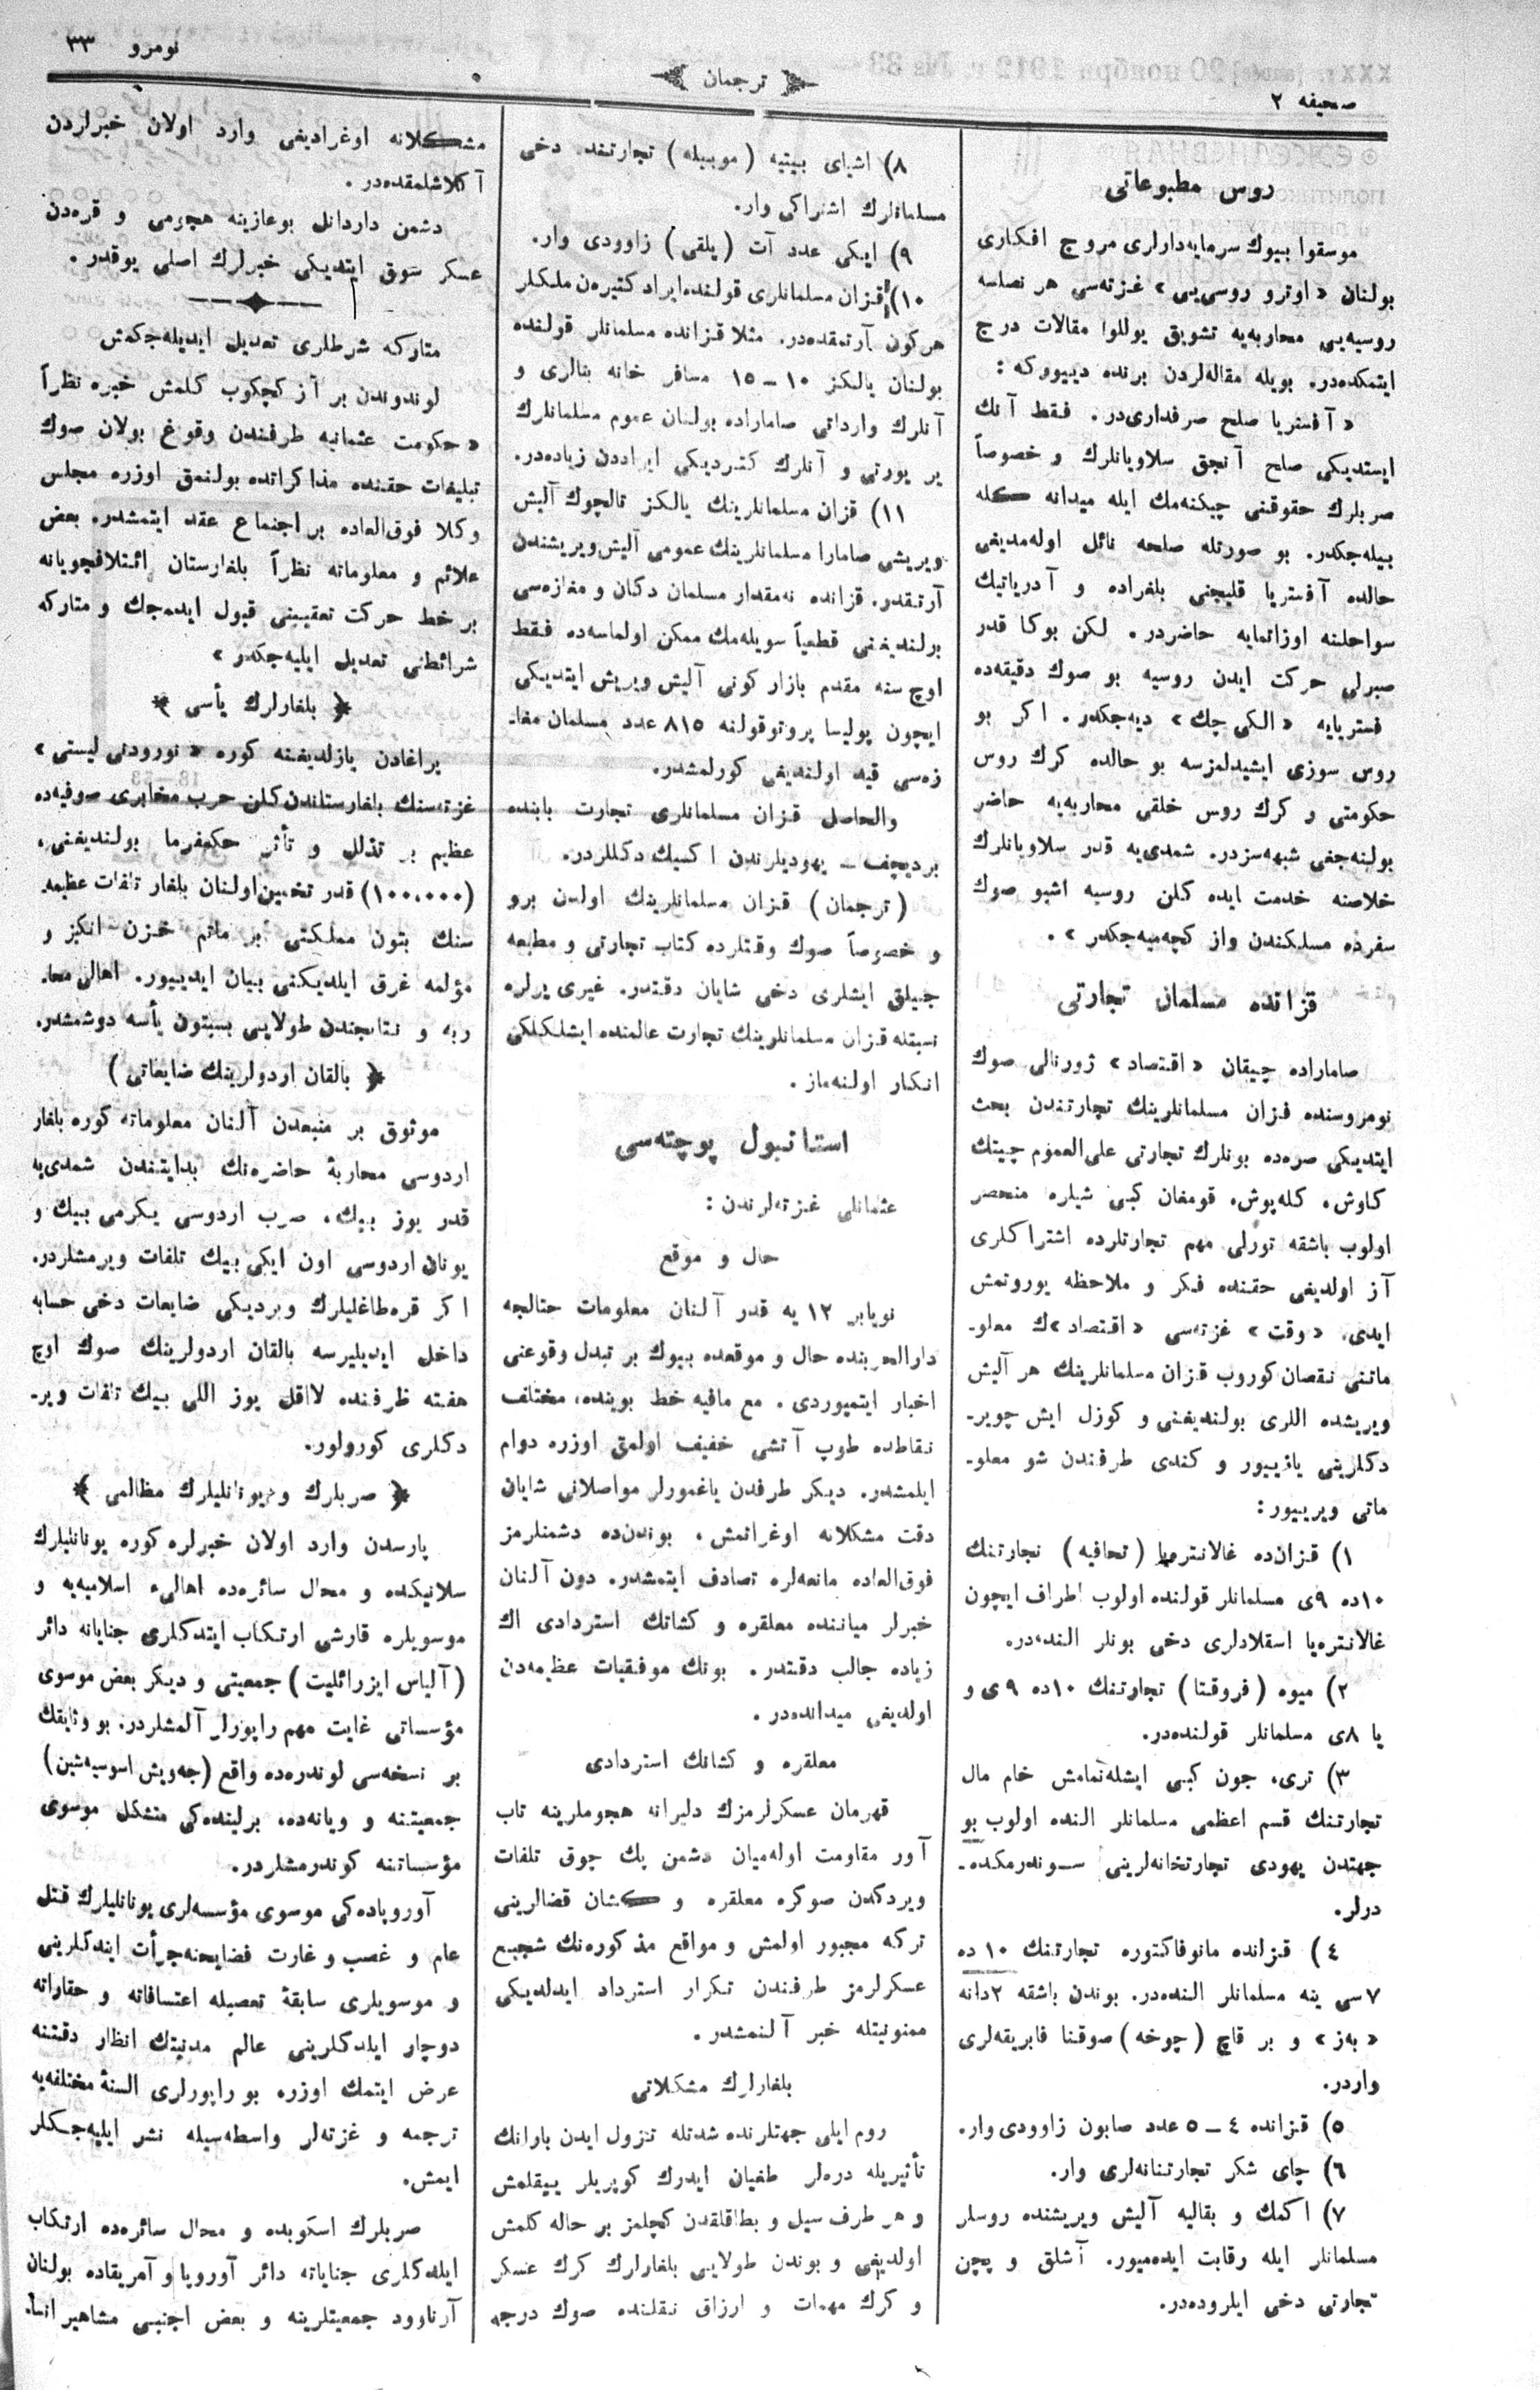 صحیفه ٢
ترجمان
نومرو ٣٣
روس مطبوعاتی
موسقوا بیوك سرمایه‌دارلری مروج افکاری
بولنان «اوترو روسی‌یی» غزته‌سی هر نصلسه
روسیه‌یی محاربه‌یه تشویق یوللوا مقالات درج
ایتمکده‌در. بویله مقاله‌لردن برنده دییورکه:
«آفستریا صلح صرفداری‌در. فقط آنك
ایستدیکی صلح آنجق سلاویانلرك و خصوصاً
صربلرك حقوقنی چیکنه‌مك ایله میدانه کله
بیله‌جکدر. بو صورتله صلحه نائل اوله‌مدیغی
حالده آفستریا قلیچنی بلغراده و آدریاتیك
سواحلنه اوزاتمایه حاضردر. لکن بوکا قدر
صبرلی حرکت ایدن روسیه بو صوك دقیقه‌ده
فستریایه «الکی چك» دیه‌جکدر. اکر بو
روس سوزی ایشیدلمزسه بو حالده کرك روس
حکومتی و کرك روس خلقی محاربه‌یه حاضر
بولنه‌جغی شبهه‌سزدر. شمدی‌یه قدر سلاویانلرك
خلاصنه خدمت ایده کلن روسیه اشبو صوك
سفرده مسلکندن واز کچه‌میه‌جکدر».
قزانده مسلمان تجارتی
صاماراده چیقان «اقتصاد» ژورنالی صوك
نومروسنده قزان مسلمانلرینك تجارتندن بحث
ایتدیکی صره‌ده بونلرك تجارتی علی‌العموم چیتك
کاوش، کله‌پوش، قومغان کبی شیلره منحصر
اولوب باشقه تورلی مهم تجارتلرده اشتراکلری
آز اولدیغی حقنده فکر و ملاحظه یوروتمش
ایدی. «وقت» غزته‌سی «اقتصاد»ك معلو-
ماتنی نقصان کوروب قزان مسلمانلرینك هر آلیش
ویریشده اللری بولندیغنی و کوزل ایش چویر-
دکلرینی یازییور و کندی طرفندن شو معلو-
ماتی ویرییور:
١) قزان‌ده غالانتره‌یا (تحافیه) تجارتنك
١٠ده ٩ی مسلمانلر قولنده اولوب اطراف ایچون
غالانتره‌یا اسقلادلری دخی بونلر النده‌در.
٢) میوه (فروقتا) تجارتنك ١٠ده ٩ی و
یا ٨ی مسلمانلر قولنده‌در.
٣) تری، جون کبی ایشله‌نمامش خام مال
تجارتنك قسم اعظمی مسلمانلر النده اولوب بو
جهتدن یهودی تجارتخانه‌لرینی سوندرمکده-
درلر.
٤) قزانده مانوفاکتوره تجارتنك ١٠ ده
٧سی ینه مسلمانلر النده‌در. بوندن باشقه ٢دانه
«به‌ز» و بر قاچ (چوخه) صوقنا فابریقه‌لری
واردر.
٥) قزانده ٤ــ٥ عدد صابون زاوودی وار.
٦) چای شکر تجارتنانه‌لری وار.
٧) اکمك و بقالیه آلیش ویریشنده روسلر
مسلمانلر ایله رقابت ایده‌میور. آشلق و پچن
تجارتی دخی ایلروده‌در.
٨) اشیای بیتیه (موبیله) تجارتنده دخی
مسلمانلرك اشتراکی وار.
٩) ایکی عدد آت (یلقی) زاوودی وار.
١٠) قزان مسلمانلری قولنده ایراد کتیره‌ن ملکلر
هرکون آرتمقده‌در. مثلا قزانده مسلمانلر قولنده
بولنان یالکز ١٠ــ١٥ مسافر خانه بنالری و
آنلرك وارداتی صاماراده بولنان عموم مسلمانلرك
یر یورتی و آنلرك کتردیکی ایراددن زیاده‌در.
١١) قزان مسلمانلرینك یالکز تالچوك آلیش
ویریشی صامارا مسلمانلرینك عمومی آلیش‌ویریشندن
آرتقدر. قزانده نه‌مقدار مسلمان دکان و مغازه‌سی
برلندیغنی قطعیاً سویله‌مك ممکن اولماسه‌ده فقط
اوچ سنه مقدم بازار کونی آلیش ویریش ایتدیکی
ایچون پولیسا پروتوقولنه ٨١٥ عدد مسلمان مغا-
زه‌سی قید اولندیغی کورلمشدر.
والحاصل قزان مسلمانلری تجارت بابنده
بردیچف ــ یهودیلرندن اکسیك دکللردر.
(ترجمان) قزان مسلمانلرینك اولدن برو
و خصوصاً صوك وقتلرده کتاب تجارتی و مطبعه
جیلق ایشلری دخی شایان دقتدر. غیری یرلره
نسبتله قزان مسلمانلرینك تجارت عالمنده ایشلکلکی
انکار اولنه‌ماز.
استانبول پوچته‌سی
عثمانلی غزته‌لرندن:
حال و موقع
نویابر ١٢ یه قدر آلنان معلومات حتالجه
دارالحربنده حال و موقعده بیوك بر تبدل وقوعنی
اخبار ایتمیوردی. مع مافیه خط بوینده، مختلف
نقاطده طوپ آتشی خفیف اولمق اوزره دوام
ایلمشدر. دیکر طرفدن یاغمورلر مواصلاتی شایان
دقت مشکلاته اوغراتمش، بوندن‌ده دشمنلرمز
فوق‌العاده مانعه‌لره تصادف ایتمشدر. دون آلنان
خبرلر میاننده معلقره و کشانك استردادی اك
زیاده جالب دقتدر. بونك موفقیات عظیمه‌دن
اولدیغی میدانده‌در.
معلقره و کشانك استردادی
قهرمان عسکرلرمزك دلیرانه هجوملرینه تاب
آور مقاومت اوله‌میان دشمن پك چوق تلفات
ویردکدن صوکره معلقره و کشان قضالرینی
ترکه مجبور اولمش و مواقع مذکوره‌نك شجیع
عسکرلرمز طرفندن تکرار استرداد ایدلدیکی
ممنونیتله خبر آلنمشدر.
بلغارلرك مشکلاتی
روم ایلی جهتلرنده شدتله تنزول ایدن بارانك
تأثیریله دره‌لر طغیان ایدرك کوپریلر ییقلمش
و هر طرف سیل و بطاقلقدن کچلمز بر حاله کلمش
اولدیغی و بوندن طولایی بلغارلرك کرك عسکر
و کرك مهمات و ارزاق نقلنده صوك درجه
مشکلاته اوغرادیغی وارد اولان خبرلردن
آکلاشلمقده‌در.
دشمن داردانل بوغازینه هجومی و قره‌دن
عسکر سوق ایتدیکی خبرلرك اصلی یوقدر.
متارکه شرطلری تعدیل ایدیله‌جکمش
لوندوندن بر آز کچکوب کلمش خبره نظراً
«حکومت عثمانیه طرفندن وقوع بولان صوك
تبلیغات حقنده مذاکراتده بولنمق اوزره مجلس
وکلا فوق‌العاده بر اجتماع عقد ایتمشدر. بعض
علائم و معلوماته نظراً بلغارستان ائتلافجویانه
بر خط حرکت تعقیبینی قبول ایده‌جك و متارکه
شرائطنی تعدیل ایلیه‌جکدر»
﴿ بلغارلرك یأسی ﴾
پراغادن یازلدیغنه کوره «نورودنی لیستی»
غزته‌سنك بلغارستاندن کلن حرب مخابری صوفیه‌ده
عظیم بر تذلل و تأثر حکمفرما بولندیغنی،
(١٠٠،٠٠٠) قدر تخمین اولنان بلغار تلفات عظیمه-
سنك بتون مملکتی بر ماتم حزن انکیز و
مؤلمه غرق ایلدیکنی بیان ایدییور. اهالی محا-
ربه و نتایجندن طولایی بسبتون یأسه دوشمشدر.
﴿ بالقان اردولرینك ضایعاتی ﴾
موثوق بر منبعدن آلنان معلوماته کوره بلغار
اردوسی محاربهٔ حاضره‌نك بدایتندن شمدی‌یه
قدر یوز بیك، صرب اردوسی یکرمی بیك و
یونان اردوسی اون ایکی بیك تلفات ویرمشلردر.
اکر قره‌طاغلیلرك ویردیکی ضایعات دخی حسابه
داخل ایدیلیرسه بالقان اردولرینك صوك اوچ
هفته ظرفنده لااقل یوز اللی بیك تلفات ویر-
دکلری کورولور.
﴿ صربلرك و یونانلیلرك مظالمی ﴾
پارسدن وارد اولان خبرلره کوره یونانلیلرك
سلانیکده و محال سائره‌ده اهالیء اسلامیه‌یه و
موسویلره قارشی ارتکاب ایتدکلری جنایاته دائر
(آلیاس ایزرائلیت) جمعیتی و دیکر بعض موسوی
مؤسساتی غایت مهم راپورلر آلمشلردر. بو وثایقك
بر نسخه‌سی لوندره‌ده واقع (جه‌ویش اسوسیه‌شین)
جمعیتنه و ویانه‌ده، برلینده‌کی متشکل موسوی
مؤسساتنه کوندرمشلردر.
آوروپاده‌کی موسوی مؤسسه‌لری یونانلیلرك قتل
عام و غصب و غارت فضایحنه جرأت ایتدکلرینی
و موسویلری سابقهٔ تعصبله اعتسافاته و حقاراته
دوچار ایلدکلرینی عالم مدنیتك انظار دقتنه
عرض ایتمك اوزره بو راپورلری السنهٔ مختلفه‌یه
ترجمه و غزته‌لر واسطه‌سیله نشر ایلیه‌جکلر
ایمش.
صربلرك اسکوبده و محال سائره‌ده ارتکاب
ایلدکلری جنایاته دائر آوروپا و آمریقاده بولنان
آرناوود جمعیتلرینه و بعض اجنبی مشاهیر انسا-